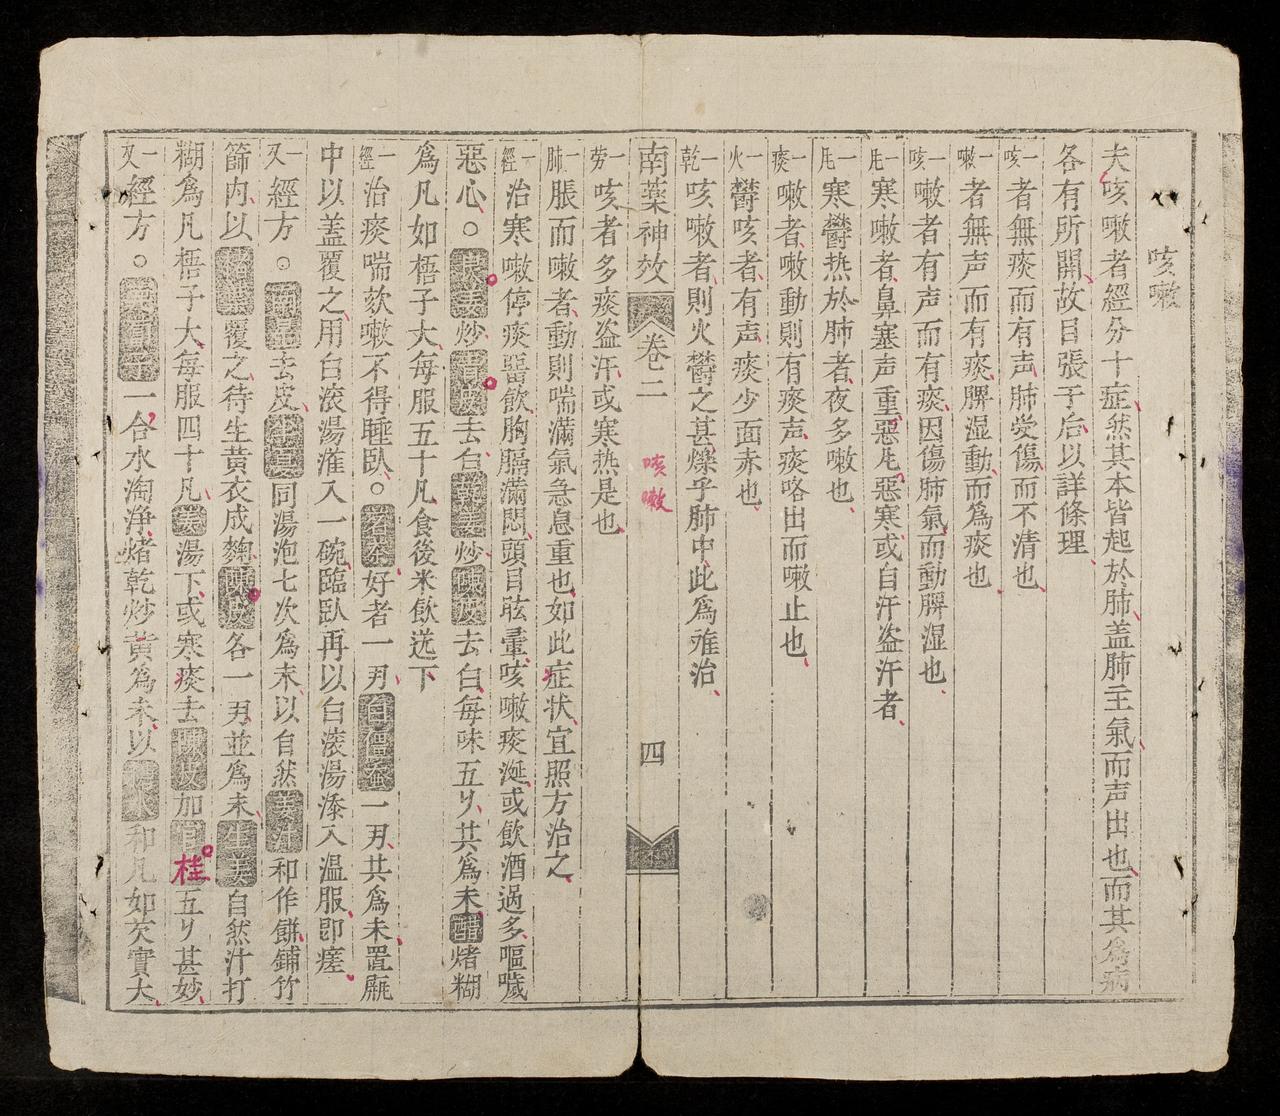 咳嗽
夫咳嗽者經分十症然其本皆起於肺盖肺主氣而声出也而其為病
各有所開故目張子后以詳條理
一咳者無痰而有声肺受傷而不清也
一嗽者無声而有痰脾湿動而為痰也
一咳嗽者有声而有痰因傷肺氣而動脾湿也
一凮寒嗽者鼻塞声重惡凮惡寒或自汗盗汗者
一凮寒欝热於肺者夜多嗽也
一痰嗽者嗽動則有痰声痰咯出而嗽止也
一火欝咳者有声痰少面赤也
一乾咳嗽者則火欝之甚爍乎肺中此為难治
南藥神效 卷二 咳嗽 四
一劳咳者多痰盗汗或寒热是也
一肺脹而嗽者動則喘滿氣急息重也如此症状宜照方治之
一經治寒嗽停痰畱飲胸膈滿悶頭目眩暈咳嗽痰涎或飲酒過多嘔噦
惡心○良姜炒青皮去白乾姜炒陳皮去白每味五𠂆共為末醋煑糊
為凡如梧子大每服五十凡食後米飲送下
一經治痰喘欬嗽不得睡臥○茗茶好者一刄白僵蚕一刄共為末置甌
中以盖覆之用白滚湯滙入一碗臨臥再以白滚湯添入温服即瘥
一又經方○南星去皮半夏同湯泡七次為末以自然姜汁和作餅鋪竹
篩内以楮葉覆之待生黄衣成麴陳皮各一刄並為末生姜自然汁打
糊為凡梧子大每服四十凡姜湯下或寒痰去陳皮加官桂五𠂆甚妙
一又經方○一合水淘淨煑乾炒黄為末以和凡如芡實大